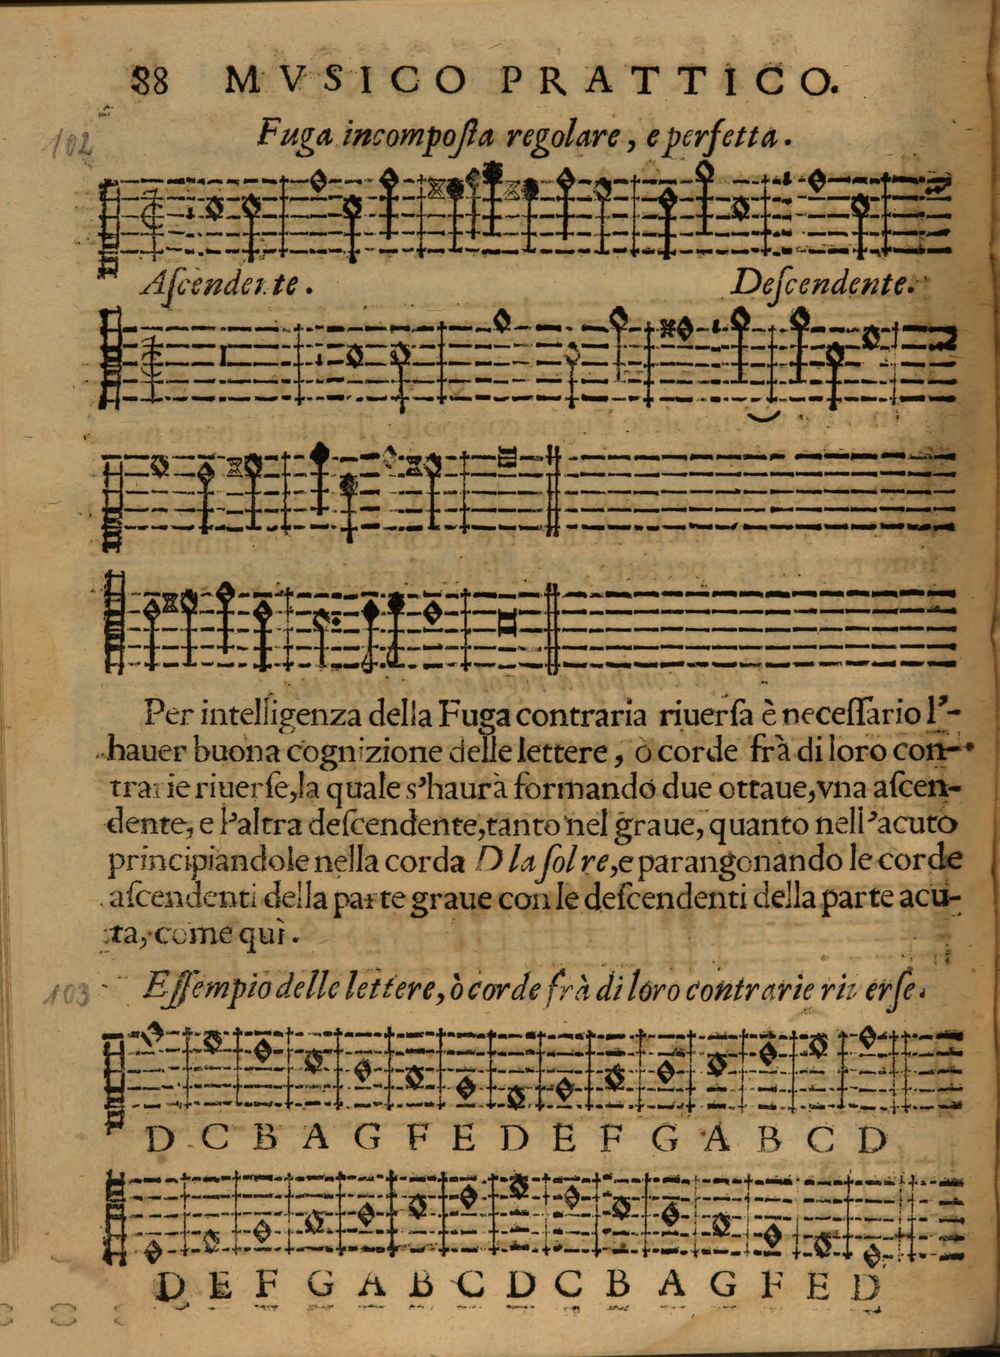 88 MVSICO PRATTICO.
102
Fuga incompoſta regolare, e perfetta.
Aſcendente. Deſcendente.
Per intelligenza della Fuga contraria riuerſa è neceſſario l'-
hauer buona cognizione delle lettere, ò corde frà di loro con-
trarie riuerſe, la quale s'haurà formando due ottaue, vna aſcen-
dente, e l'altra deſcendente, tanto nel graue, quanto nell'acuto
principiandole nella corda D la ſol re, e parangonando le corde
aſcendenti della parte graue con le deſcendenti della parte acu-
ta, come quì.
103
Eſſempio delle lettere, ò corde frà di loro contrarie riuerſe.
D C B A G F E D E F G A B C D
D E F G A B C D C B A G F E D